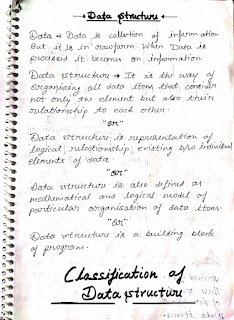 Data Structure
Data → Data is collection of information
But it is in rawform. When Data is
processed it becomes an information
Data Structure → It is the way of
organising all data items that consider
not only the element but also their
relationship to each other.
"or"
Data structure is representation of
logical relationship existing b/w individual
elements of data
"or"
Data structure is also defined as
mathematical and logical model of
particular organisation of data items.
"or"
Data structure is a building block
of program.
Classification of
Data structure